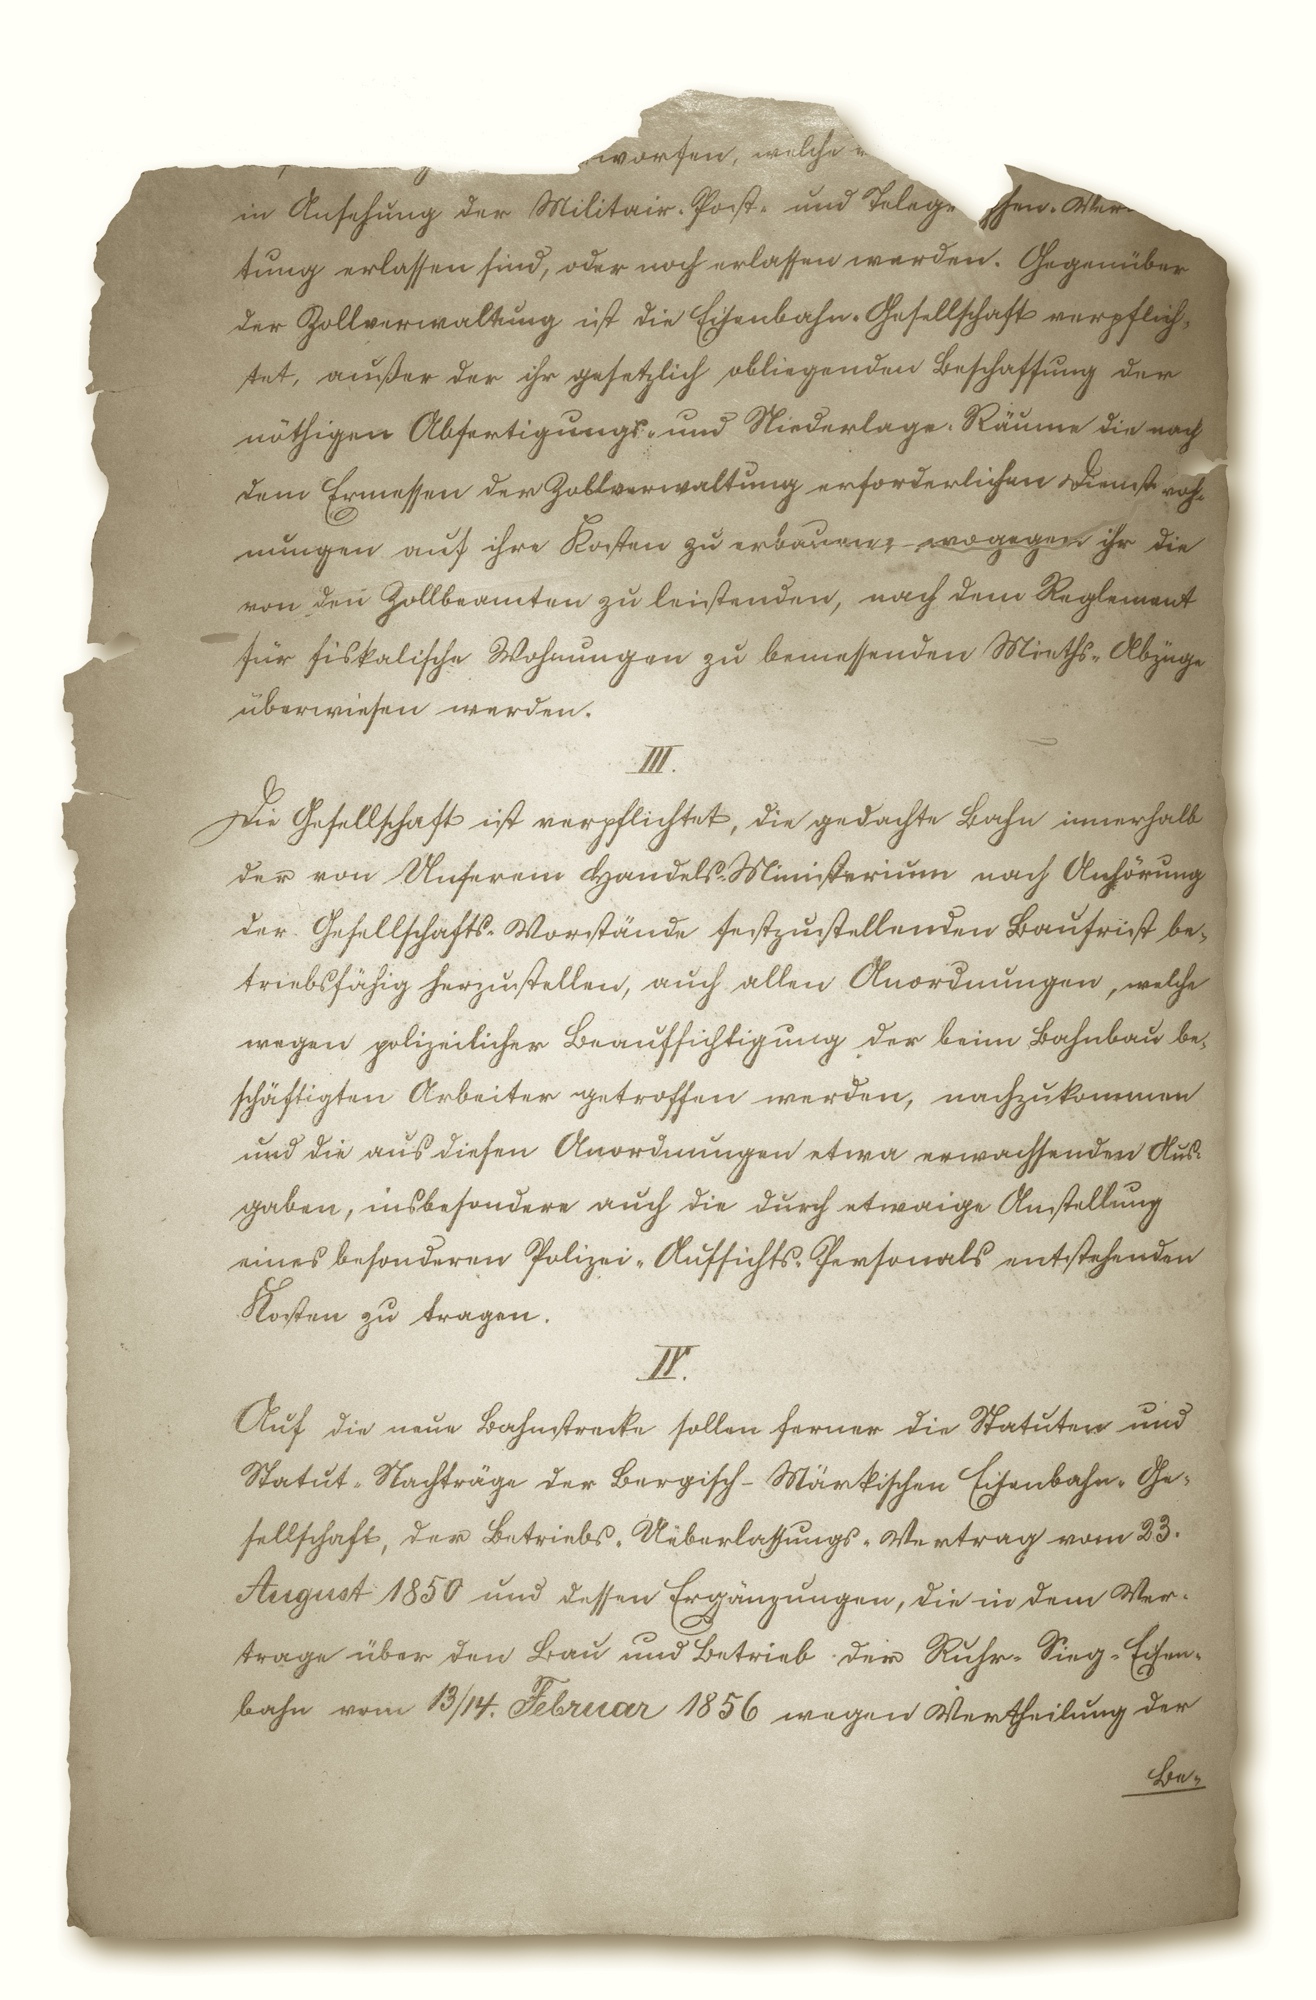 worfen, welche
in Ansehung der Militair- Post- und Telegr phen-Ver
tung erlassen sind, oder noch erlassen werden. Gegenüber
der Zollverwaltung ist die Eisenbahn-Gesellschaft verpflich-
tet, außer der ihr gesetzlich obliegenden Beschaffung der
nöthigen Abfertigungs- und Niederlage-Räume die nach
dem Ermessen der Zollverwaltung erforderlichen Dienstwoh-
nungen auf ihre Kosten zu erbauen, wogegen ihr die
von den Zollbeamten zu leistenden, nach dem Reglement
für fiskalische Wohnungen zu bemessenden Mieths-Abzüge
überwiesen werden.
III.
Die Gesellschaft ist verpflichtet, die gedachte Bahn innerhalb
der von Unserem Handels-Ministerium nach Anhörung
der Gesellschafts-Vorstände festzustellenden Baufrist be-
triebsfähig herzustellen, auch allen Anordnungen, welche
wegen polizeilicher Beaufsichtigung der beim Bahnbau be-
schäftigten Arbeiter getroffen werden, nachzukommen
und die aus diesen Anordnungen etwa erwachsenden Aus-
gaben, insbesondere auch die durch etwaige Anstellung
eines besonderen Polizei-Aufsichts-Personals entstehenden
Kosten zu tragen.
IV.
Auf die neue Bahnstrecke sollen ferner die Statuten und
Statut-Nachträge der Bergisch-Märkischen Eisenbahn-Ge-
sellschaft, der Betriebs-Ueberlassungs-Vertrag vom 23.
August 1850 und dessen Ergänzungen, die in dem Ver-
trage über den Bau und Betrieb der Ruhr-Sieg-Eisen-
bahn vom 13/14. Februar 1856 wegen Vertheilung der
Be-